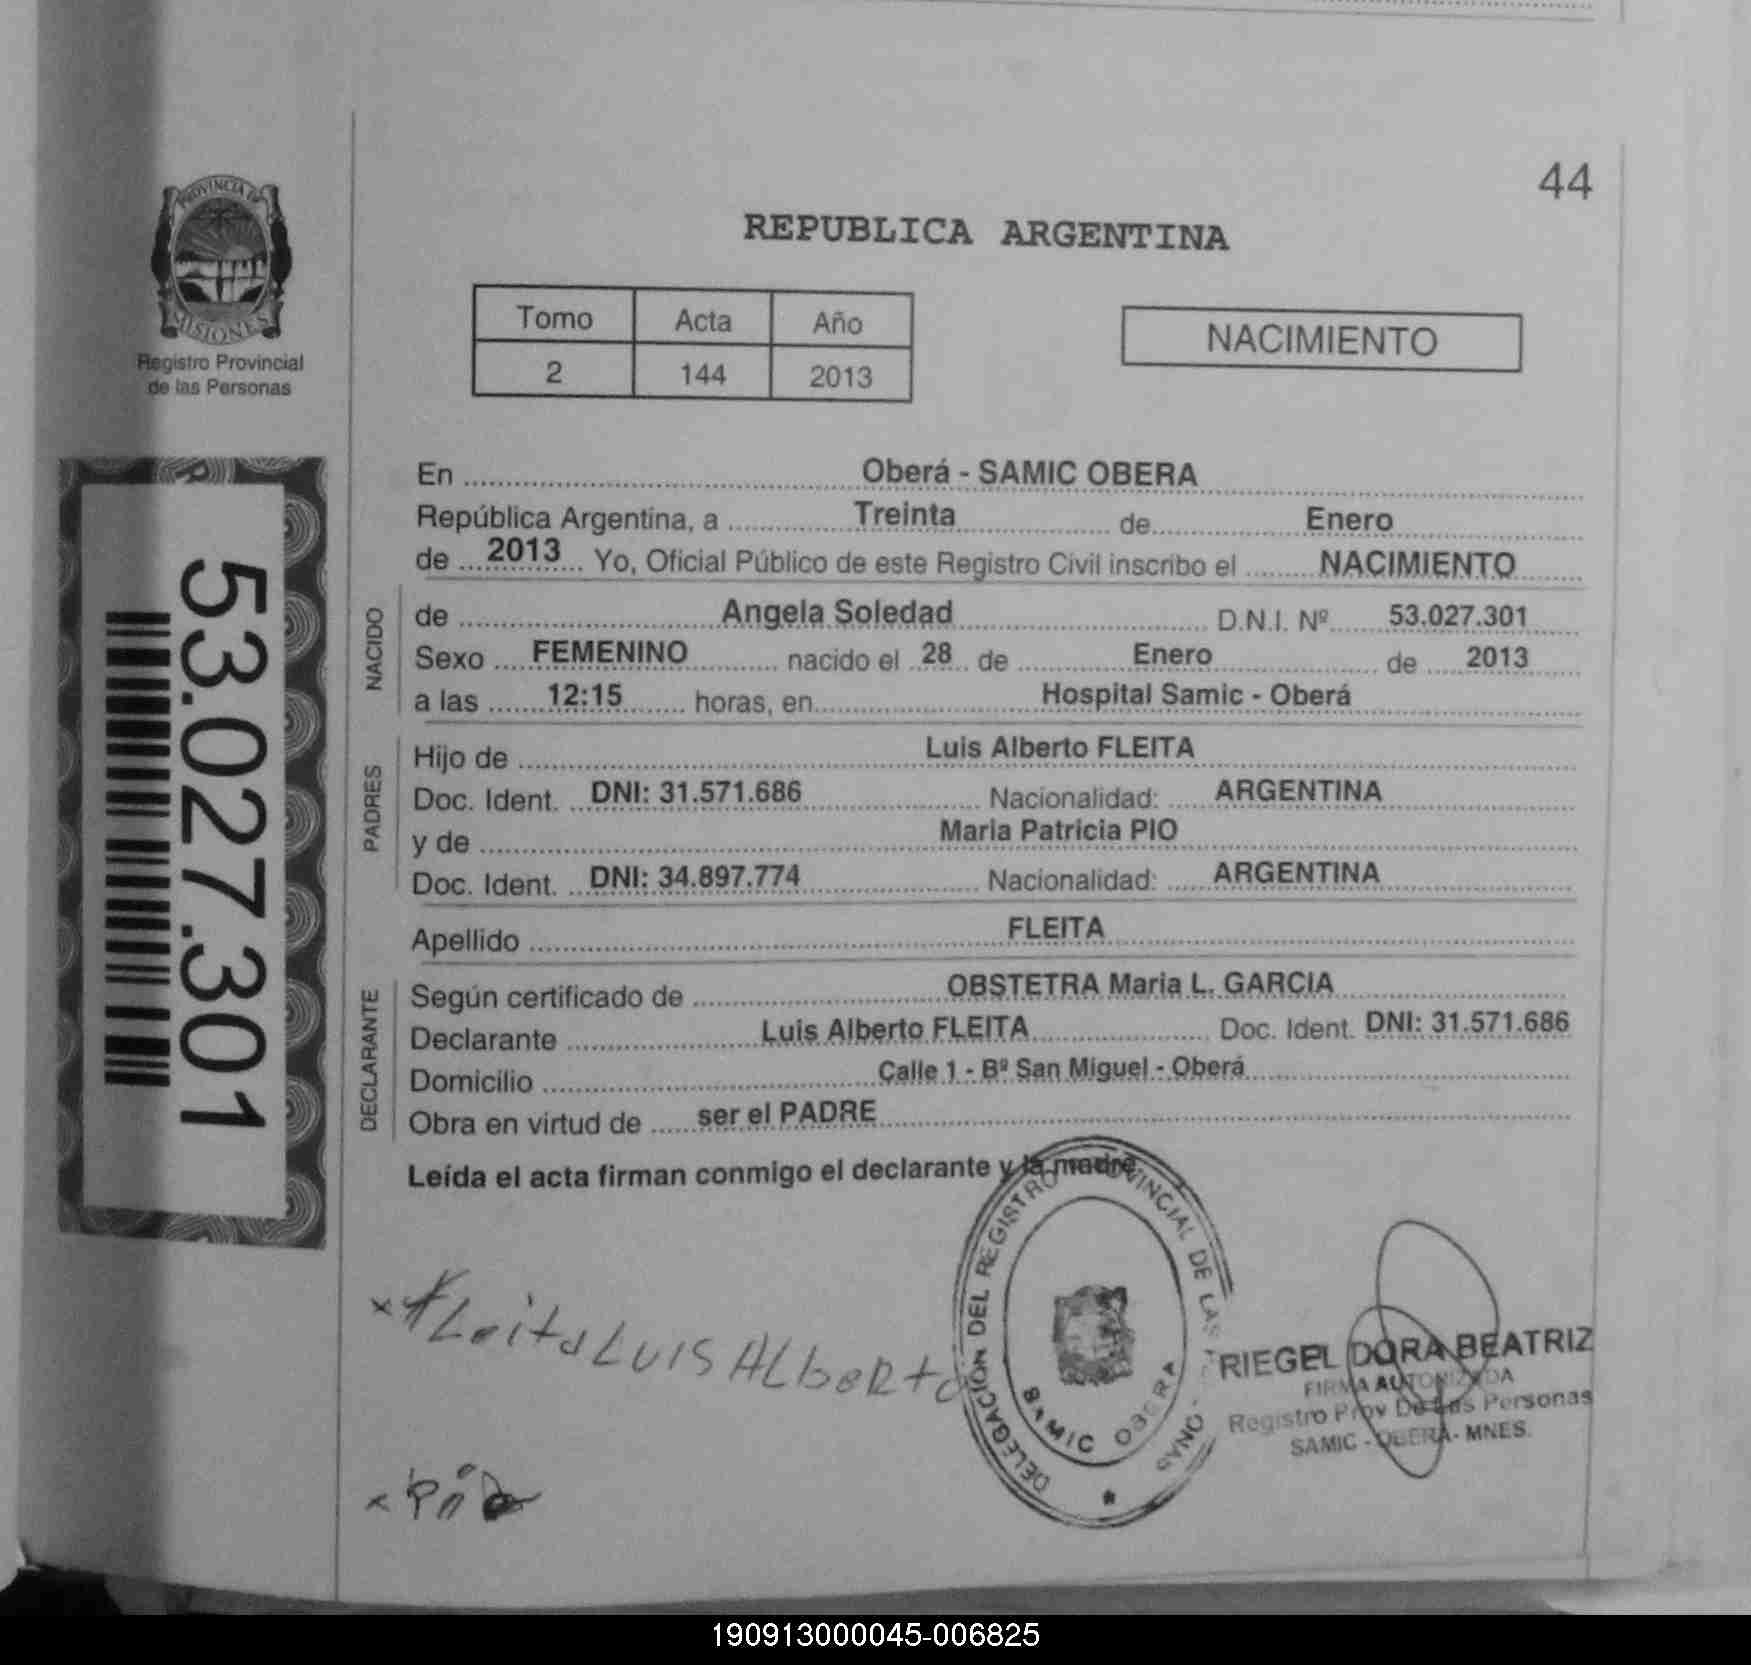 44
PROVINCIA DE
MISIONES
Registro Provincial
de las Personas
REPUBLICA ARGENTINA
Tomo Acta Año
2 144 2013
NACIMIENTO
53.027.301
En Oberá - SAMIC OBERA
República Argentina, a Treinta de Enero
de 2013 Yo, Oficial Público de este Registro Civil inscribo el NACIMIENTO
NACIDO
de Angela Soledad D.N.I. Nº 53.027.301
Sexo FEMENINO nacido el 28 de Enero de 2013
a las 12:15 horas, en Hospital Samic - Oberá
PADRES
Hijo de Luis Alberto FLEITA
Doc. Ident. DNI: 31.571.686 Nacionalidad: ARGENTINA
y de Maria Patricia PIO
Doc. Ident. DNI: 34.897.774 Nacionalidad: ARGENTINA
Apellido FLEITA
DECLARANTE
Según certificado de OBSTETRA Maria L. GARCIA
Declarante Luis Alberto FLEITA Doc. Ident. DNI: 31.571.686
Domicilio Calle 1 - Bº San Miguel - Oberá
Obra en virtud de ser el PADRE
Leída el acta firman conmigo el declarante y la madre
x Fleita LUIS ALbeRto
x Pio
DELEGACIÓN DEL REGISTRO PROVINCIAL DE LAS
SAMIC OBERA
RIEGEL DORA BEATRIZ
FIRMA AUTORIZADA
Registro Prov De Las Personas
SAMIC - OBERA - MNES.
190913000045-006825